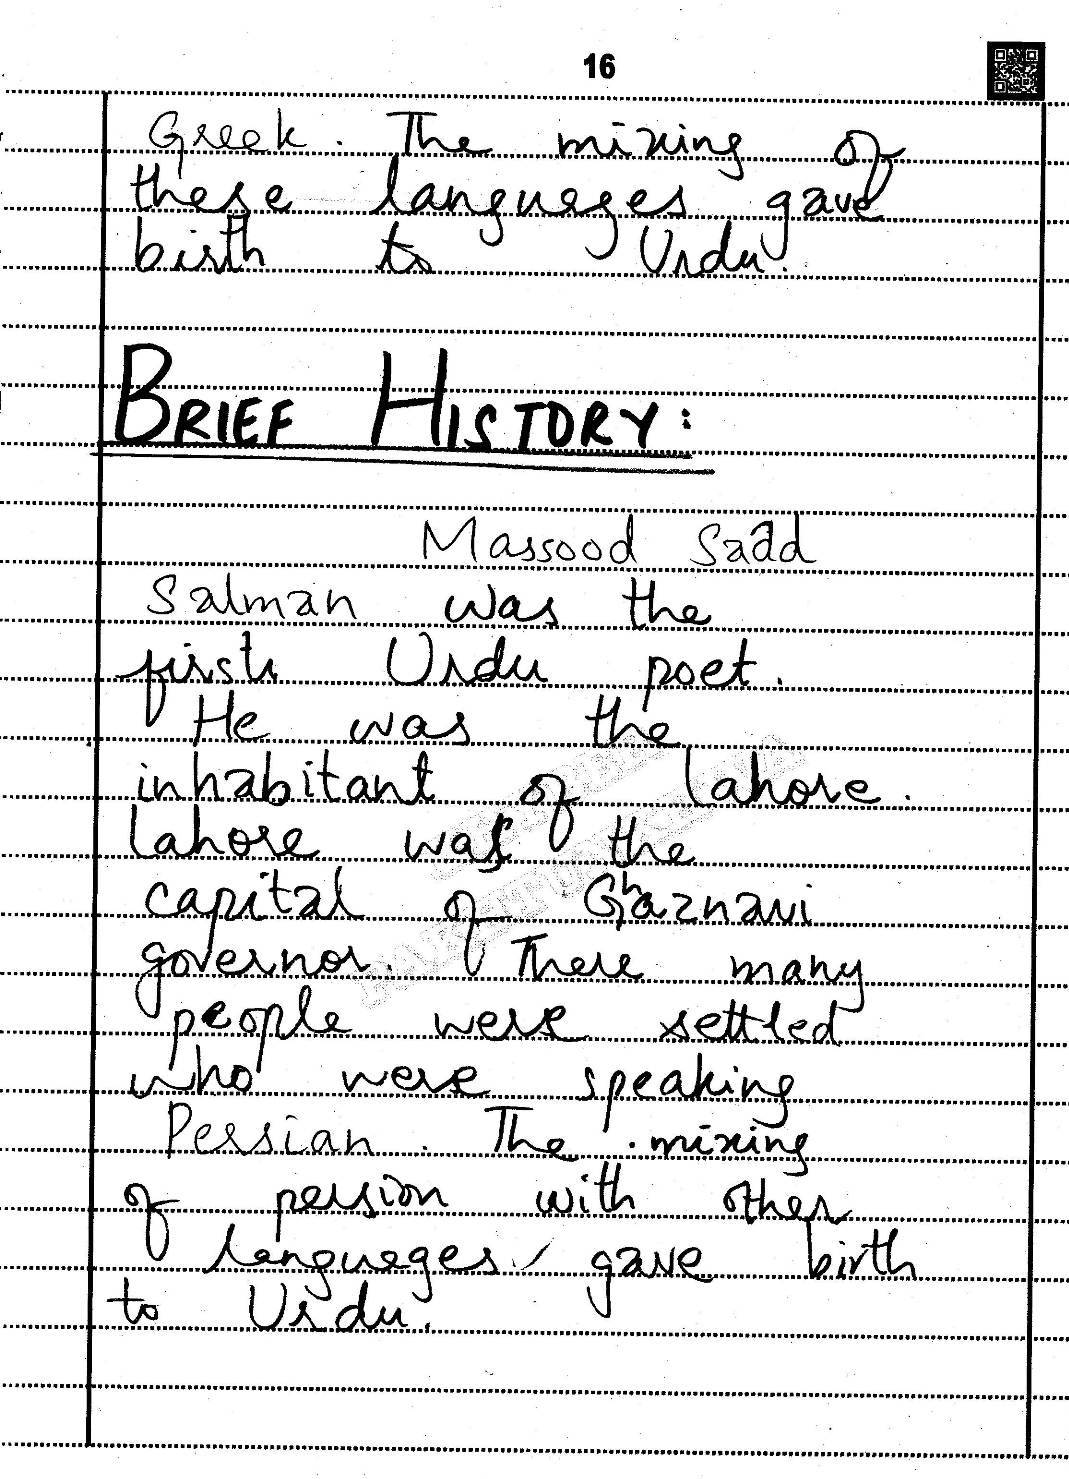 16
Greek. The mixing of
these langueges gave
birth to Urdu.
BRIEF HISTORY:
Massood Saad
Salman was the
first Urdu poet.
He was the
inhabitant of Lahore.
Lahore was the
capital of Ghaznavi
governor. There many
people were settled
who were speaking
Persian. The mixing
of persion with other
langueges gave birth
to Urdu.